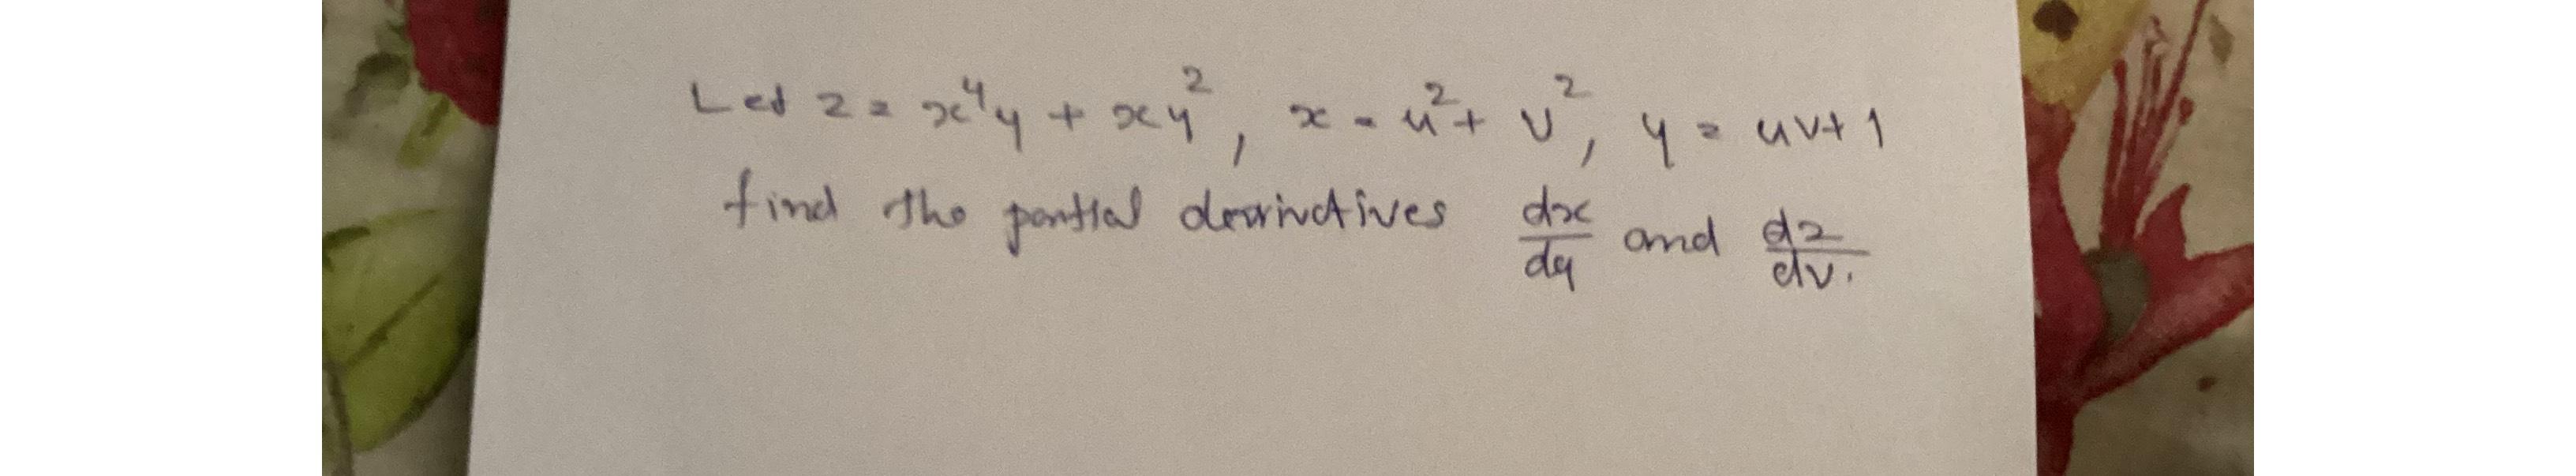 Let z = x⁴y + xy², x = u² + v², y = uv + 1
find the partial derivatives dx/du and dz/dv.